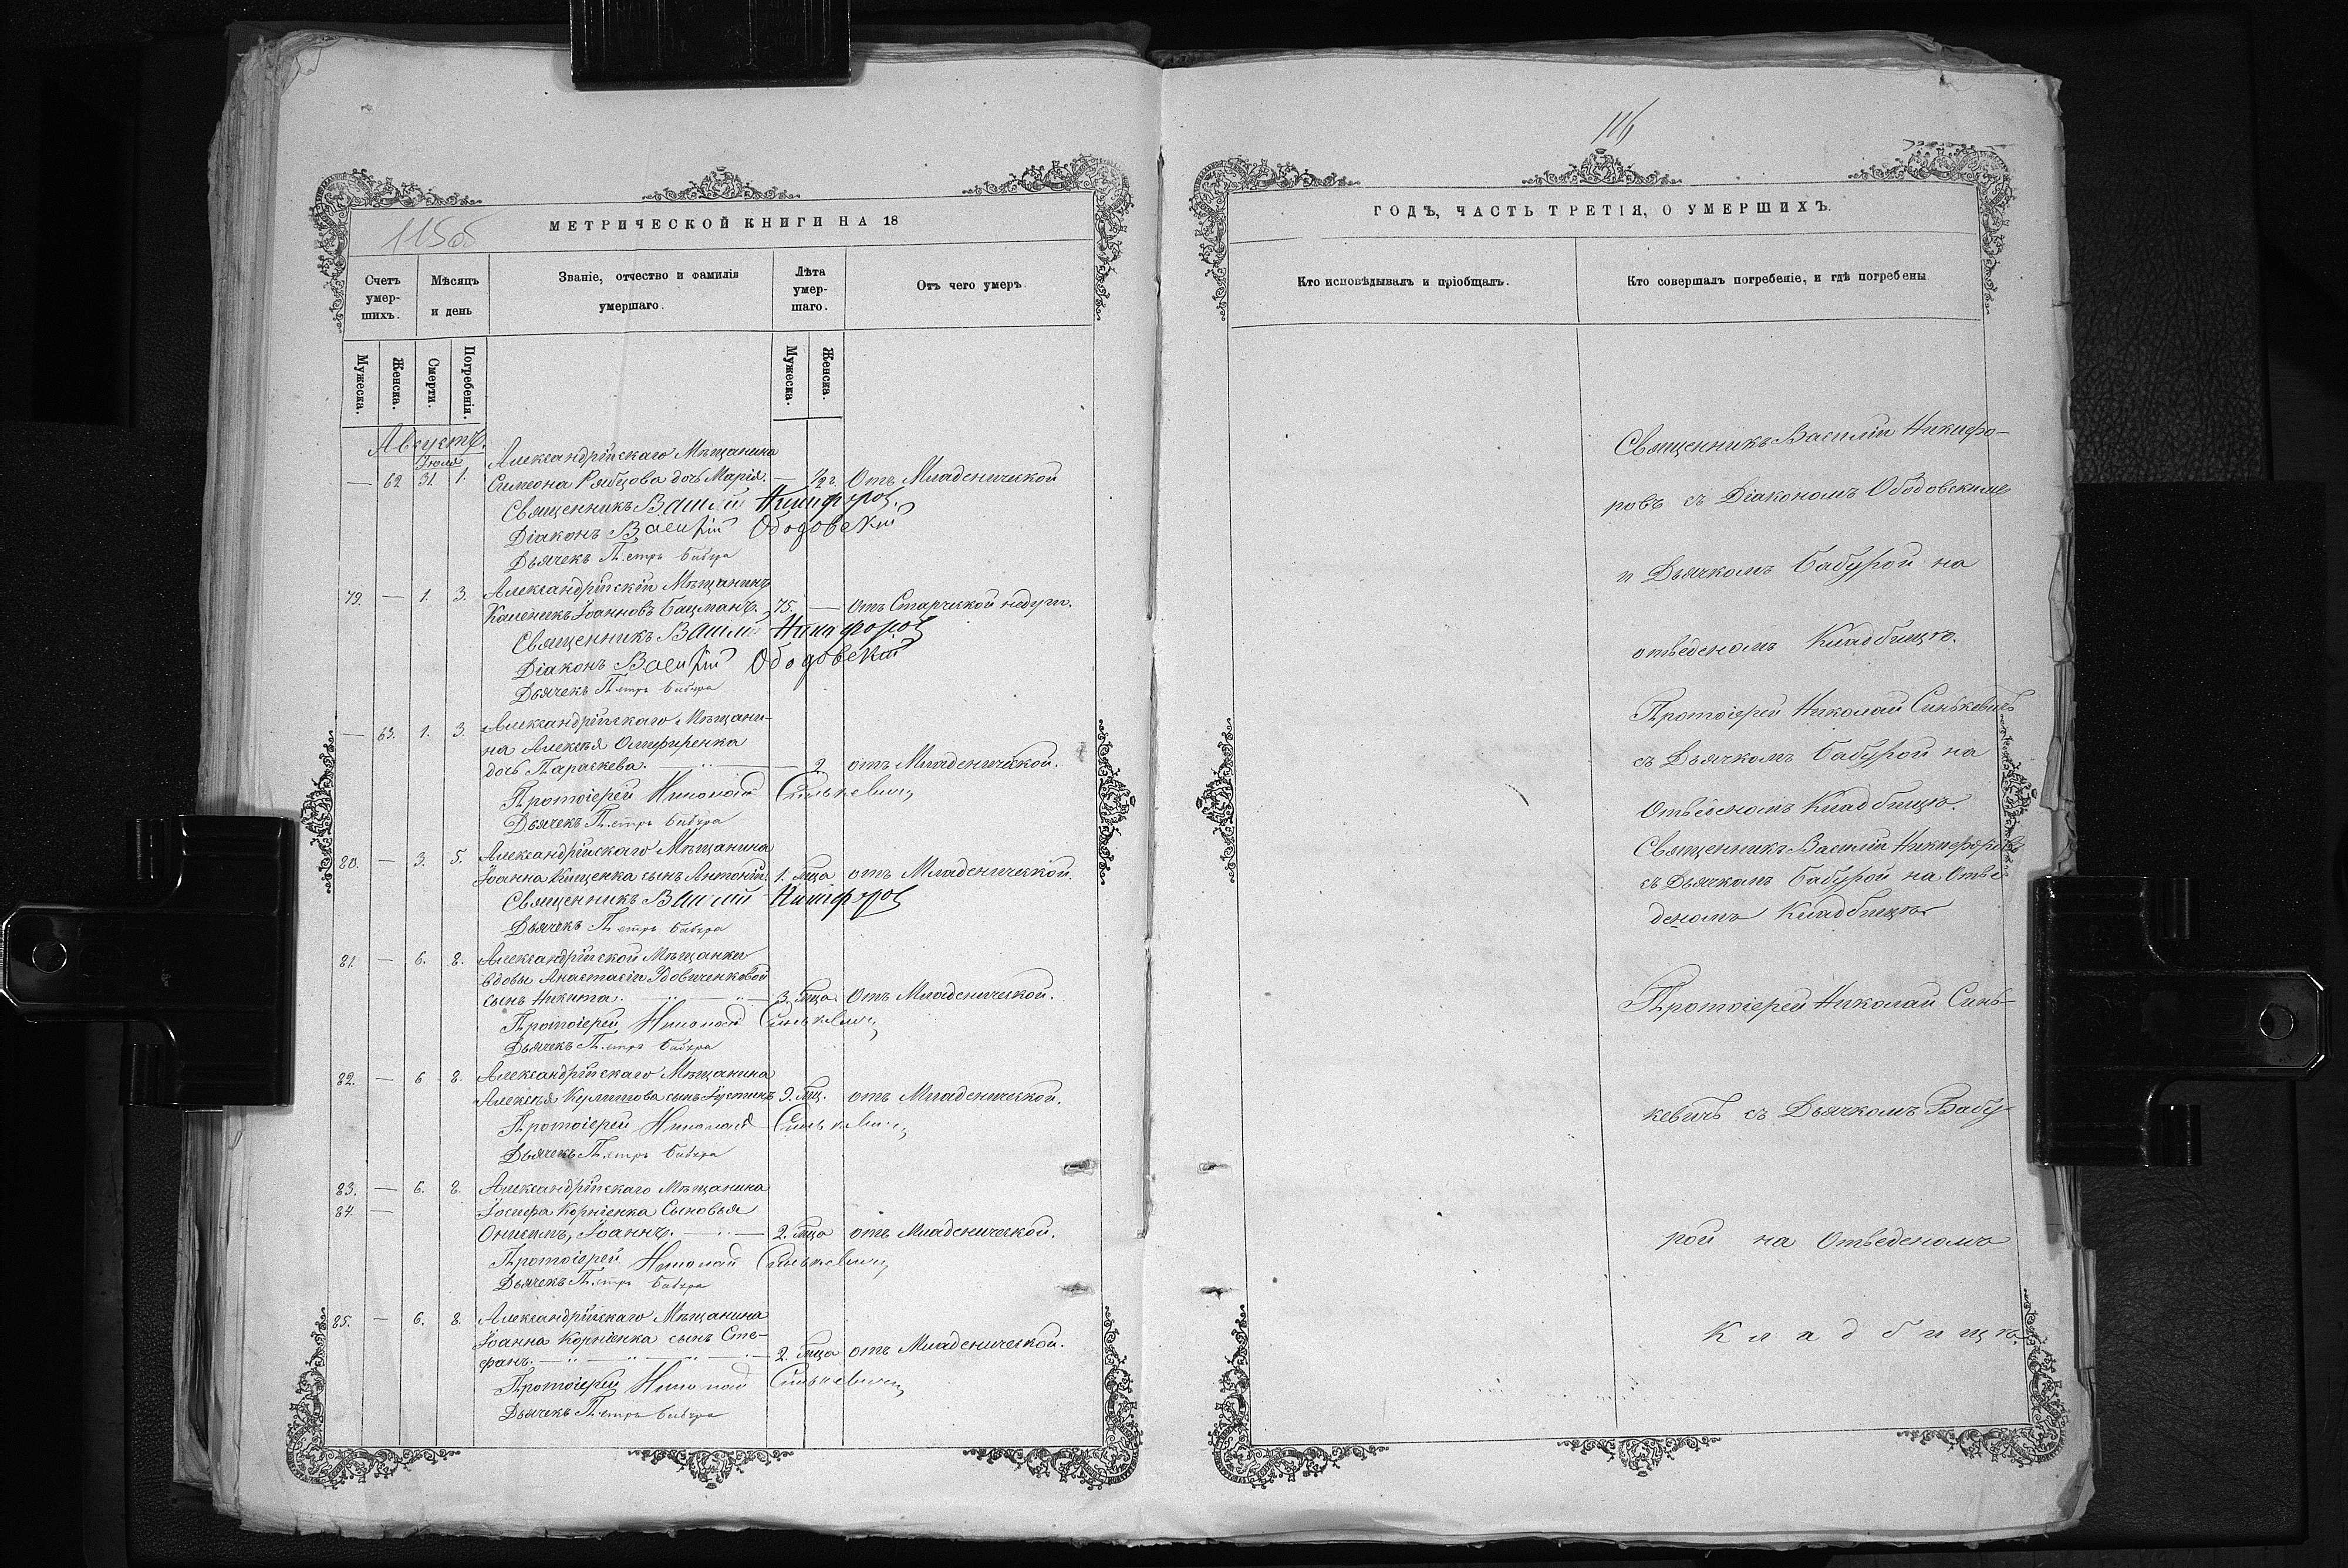 115об
МЕТРИЧЕСКОЙ КНИГИ НА 18
Счетъ умер- шихъ.
Мѣсяцъ и день
Званіе, отчество и фамилія умершаго.
Лѣта умер- шаго.
Отъ чего умеръ
Мужеска.
Женска.
Смерти.
Погребенія.
Мужеска.
Женска.
Августъ.
Іюля
Александрійскаго Мѣщанина
— 62 31. 1. Симеона Рябцова дочь Марія. — 1/2 г. Отъ Младенической
Священникъ Василій Никифоровъ
Діаконъ Василій Ободовскій
Дьячекъ Петръ Бабура
79. — 1. 3. Александрійскій Мѣщанинъ
Каленикъ Іоанновъ Бацманъ. 75. — Отъ Старческой недуги.
Священникъ Василій Никифоровъ
Діаконъ Василій Ободовскій
Дьячекъ Петръ Бабура
— 63. 1. 3. Александрійскаго Мѣщани-
на Алексѣя Олифиренка
дочь Параскева. — 2. отъ Младенической.
Протоіерей Николай Синькевичъ
Дьячекъ Петръ Бабура
80. — 3. 5. Александрійскаго Мѣщанина
Іоанна Кищенка сынъ Антоній. 1. мца отъ Младенической.
Священникъ Василій Никифоровъ
Дьячекъ Петръ Бабура
81. — 6. 8. Александрійской Мѣщанки
вдовы Анастасіи Удовиченковой
сынъ Никита. — 3. мца. Отъ Младенической.
Протоіерей Николай Синькевичъ
Дьячекъ Петръ Бабура
82. — 6 8. Александрійскаго Мѣщанина
Алексѣя сынъ Іустинъ 9. мц. отъ Младенической.
Протоіерей Николай Синькевичъ
Дьячекъ Петръ Бабура
83. — 6. 8. Александрійскаго Мѣщанина
84. — Іосифа Корніенка Сыновья
Онисимъ, Іоаннъ. — 2. мца отъ Младенической.
Протоіерей Николай Синькевичъ
Дьячекъ Петръ Бабура
85. — 6. 8. Александрійскаго Мѣщанина
Іоанна Корніенка сынъ Сте-
фанъ. — 2. мца отъ Младенической.
Протоіерей Николай Синькевичъ
Дьячекъ Петръ Бабура
116
ГОДЪ, ЧАСТЬ ТРЕТІЯ, О УМЕРШИХЪ.
Кто исповѣдывалъ и пріобщалъ.
Кто совершалъ погребеніе, и гдѣ погребены
Священникъ Василій Никифо-
ровъ съ Діакономъ Ободовскимъ
и Дьячкомъ Бабурой на
отведеномъ Кладбищѣ.
Протоіерей Николай Синькевичъ
съ Дьячкомъ Бабурой на
Отведеномъ Кладбищѣ.
Священникъ Василій Никифоровъ
съ Дьячкомъ Бабурой на Отве
деномъ Кладбищѣ
Протоіерей Николай Синь-
кевичъ съ Дьячкомъ Бабу-
рой на Отведеномъ
Кладбищѣ